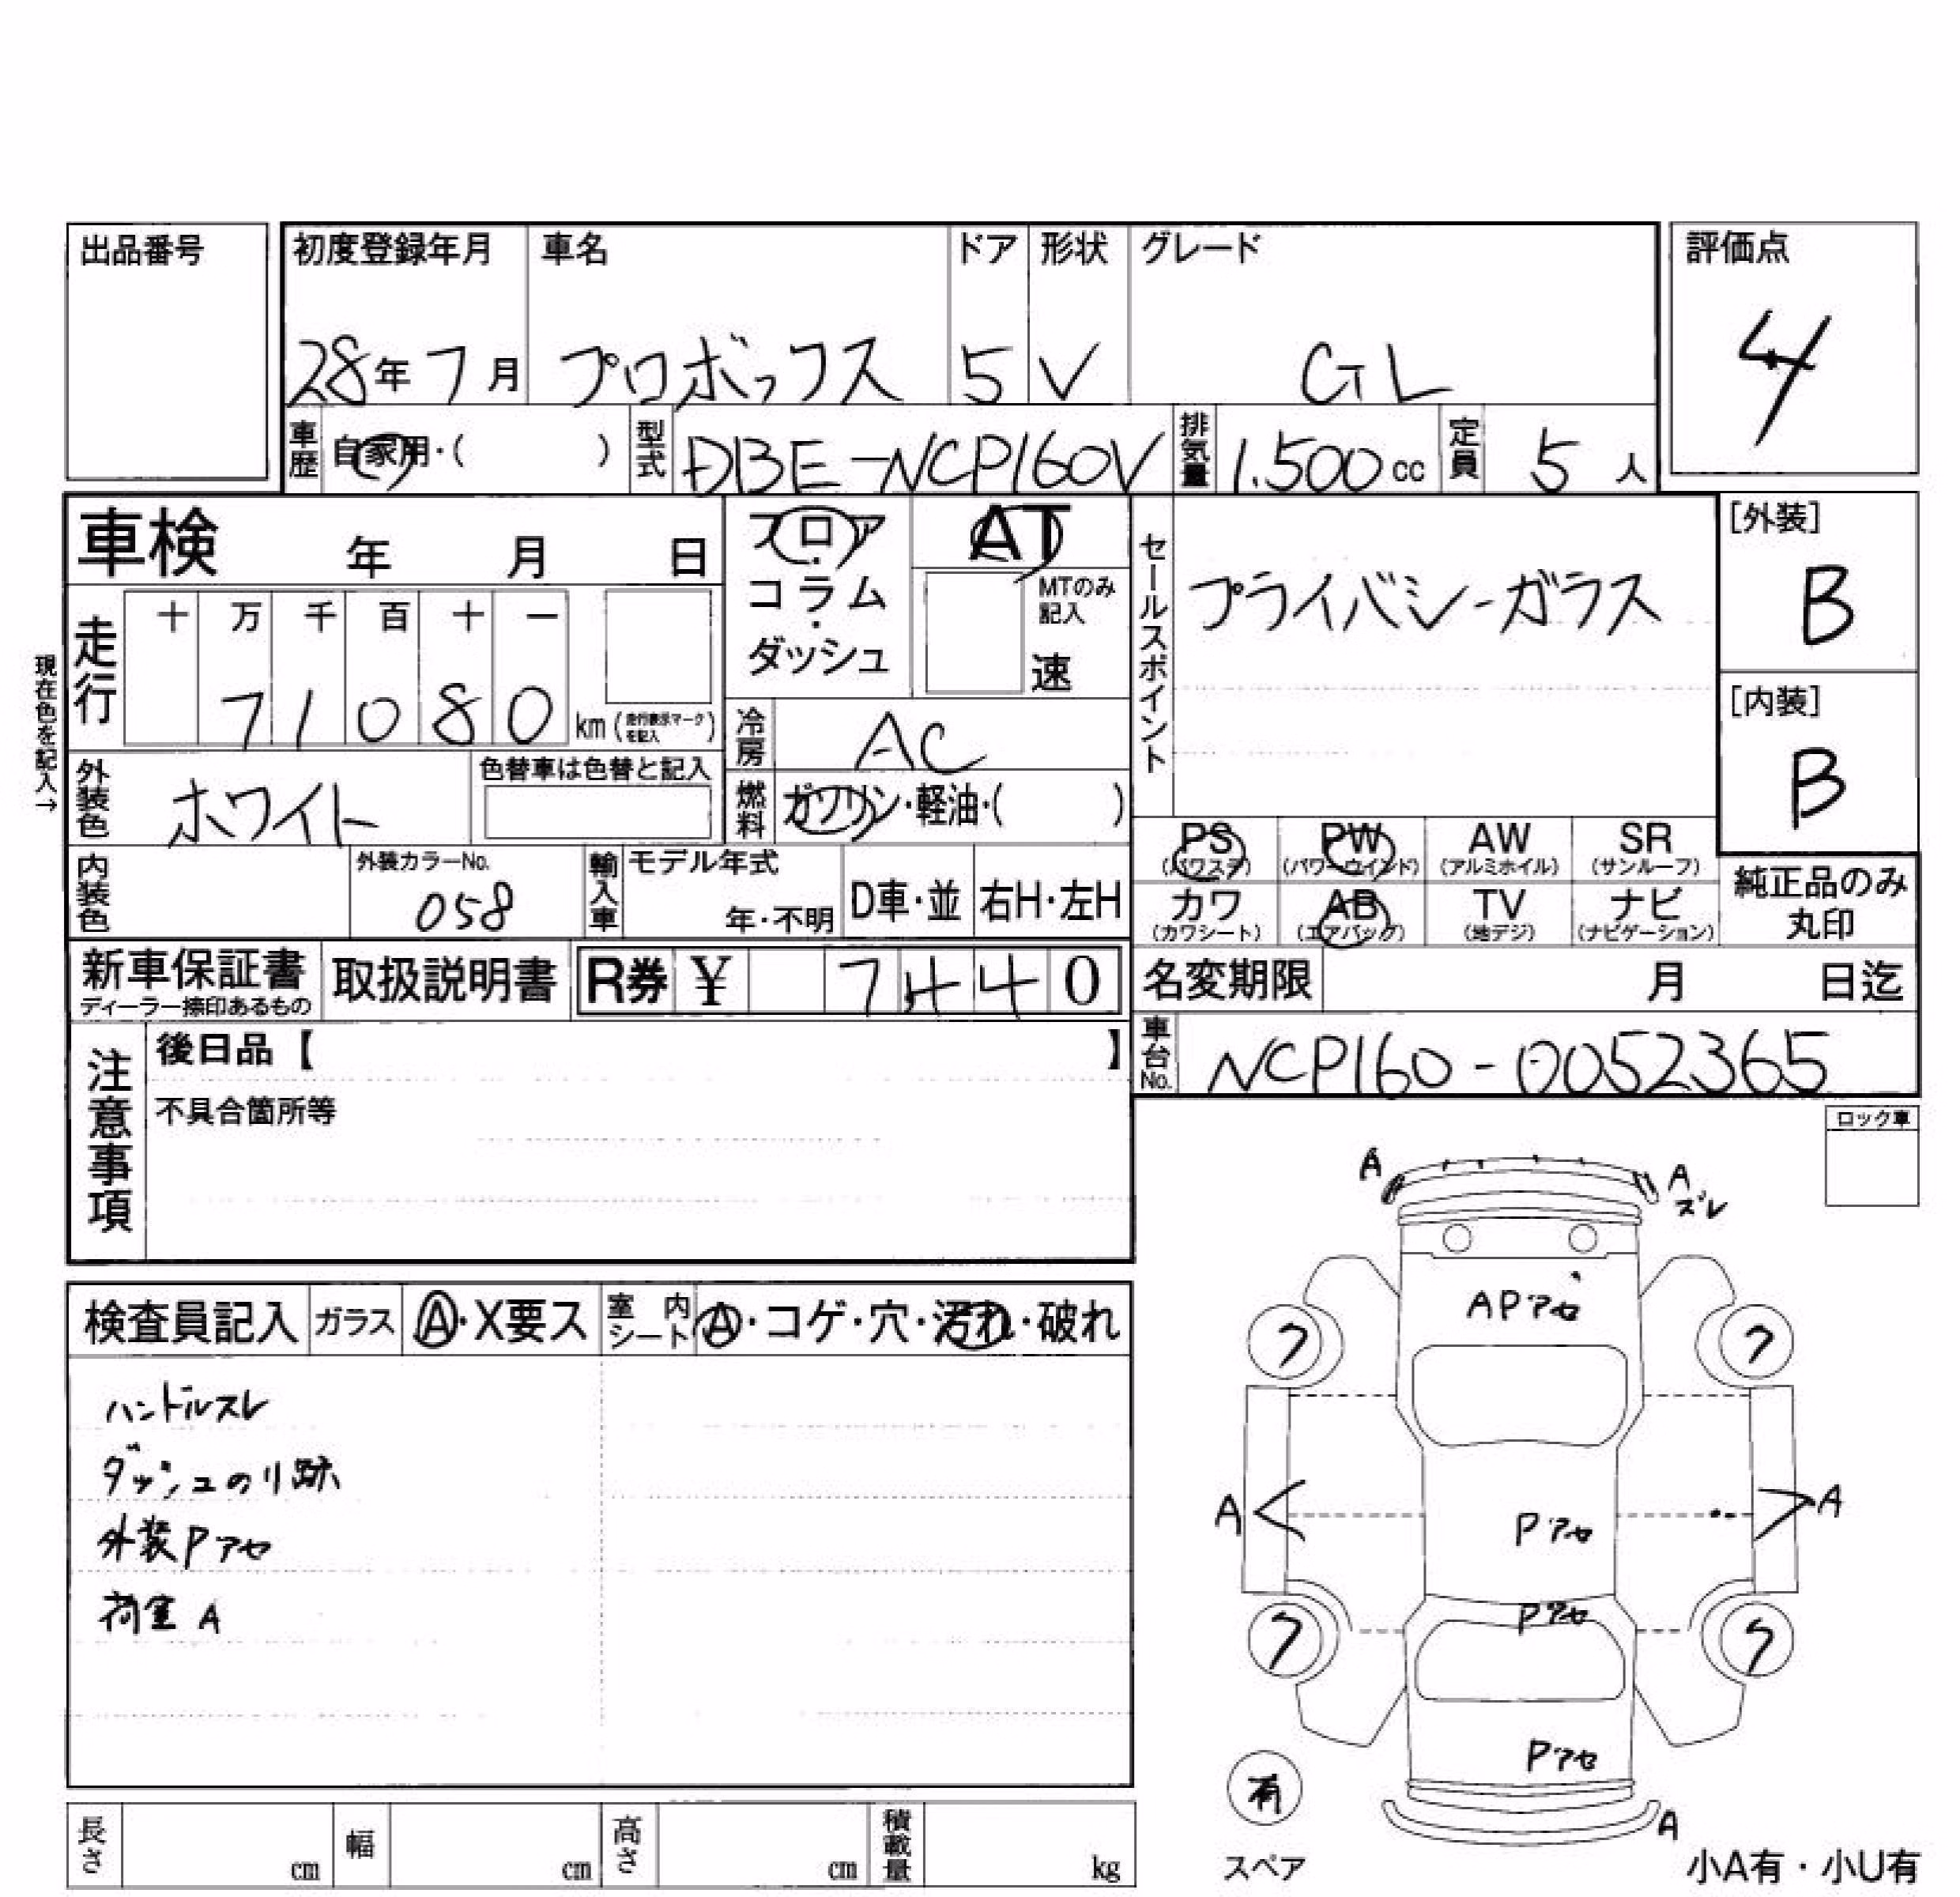 出品番号
初度登録年月 車名 ドア 形状 グレード 評価点
28年7月 プロボックス 5 V GL 4
車歴 自家用・( ) 型式 DBE-NCP160V 排気量 1.500cc 定員 5人
車検 年 月 日
フロア・コラム・ダッシュ
AT
MTのみ記入
速
セールスポイント
プライバシーガラス
[外装]
B
[内装]
B
現在色を記入→
走行 十 万 千 百 十 一
7 1 0 8 0 km (走行表示マークを記入)
冷房 AC
燃料 ガソリン・軽油・( )
外装色 ホワイト 色替車は色替と記入
内装色 外装カラーNo. 058
輸入車 モデル年式 年・不明 D車・並 右H・左H
PS (パワステ) PW (パワーウインド) AW (アルミホイル) SR (サンルーフ)
カワ (カワシート) AB (エアバッグ) TV (地デジ) ナビ (ナビゲーション)
純正品のみ丸印
新車保証書 ディーラー捺印あるもの 取扱説明書 R券 ¥ 7440
名変期限 月 日迄
車台No. NCP160-0052365
注意事項
後日品【 】
不具合箇所等
ロック車
検査員記入 ガラス A・X要ス 室内シート A・コゲ・穴・汚れ・破れ
ハンドルスレ
ダッシュのり跡
外装Pアセ
荷室 A
A
A
ズレ
APアセ
フ フ
A A
Pアセ
Pアセ
フ フ
Pアセ
有
スペア
A
小A有・小U有
長さ cm 幅 cm 高さ cm 積載量 kg